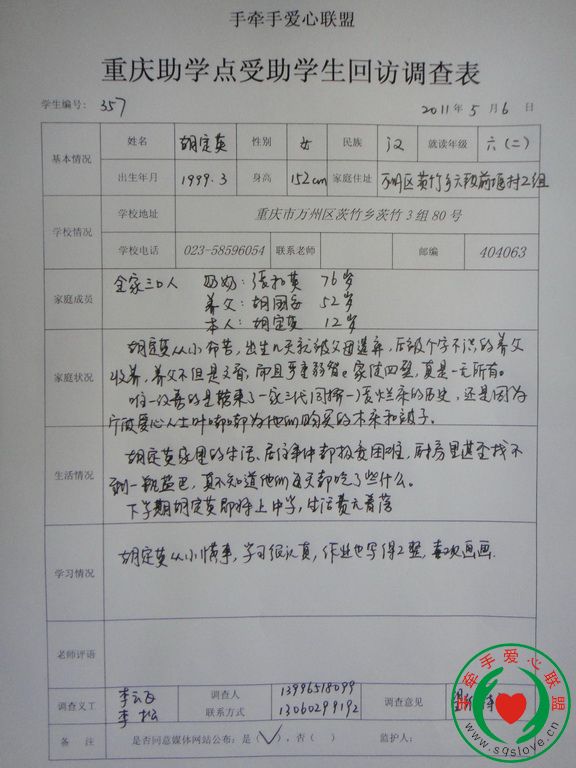 手牵手爱心联盟
重庆助学点受助学生回访调查表
学生编号: 357 2011年 5月 6日
基本情况 姓名 胡定英 性别 女 民族 汉 就读年级 六(二)
出生年月 1999.3 身高 152cm 家庭住址 万州区茨竹乡 村2组
学校情况 学校地址 重庆市万州区茨竹乡茨竹3组80号
学校电话 023-58596054 联系老师 邮编 404063
家庭成员 全家三口人 奶奶:张 英 76岁
养父:胡国 52岁
本人:胡定英 12岁
家庭状况 胡定英从小命苦,出生几天就被父母遗弃,后被个字不识的养父
收养,养父不但是文盲,而且严重弱智。家徒四壁,真是一无所有。
唯一改善的是结束了一家三代同挤一房烂床的历史,还是因为
宁波爱心人士叶 为他们购买的木床和被子。
生活情况 胡定英家里的生活、居住条件都极贫困难,厨房里甚至找不
到一瓶盐巴,真不知道他们每天都吃了些什么。
下学期胡定英即将上中学,生活费无着落
学习情况 胡定英从小懂事,学习很认真,作业也写得工整,喜欢画画.
老师评语
调查义工 李云飞 调查人 13996518099 调查意见
李松 联系方式 13060299192
备 注 是否同意媒体网站公布:是(√),否( ) 监护人:
手牵手爱心联盟
www.sqslove.cn